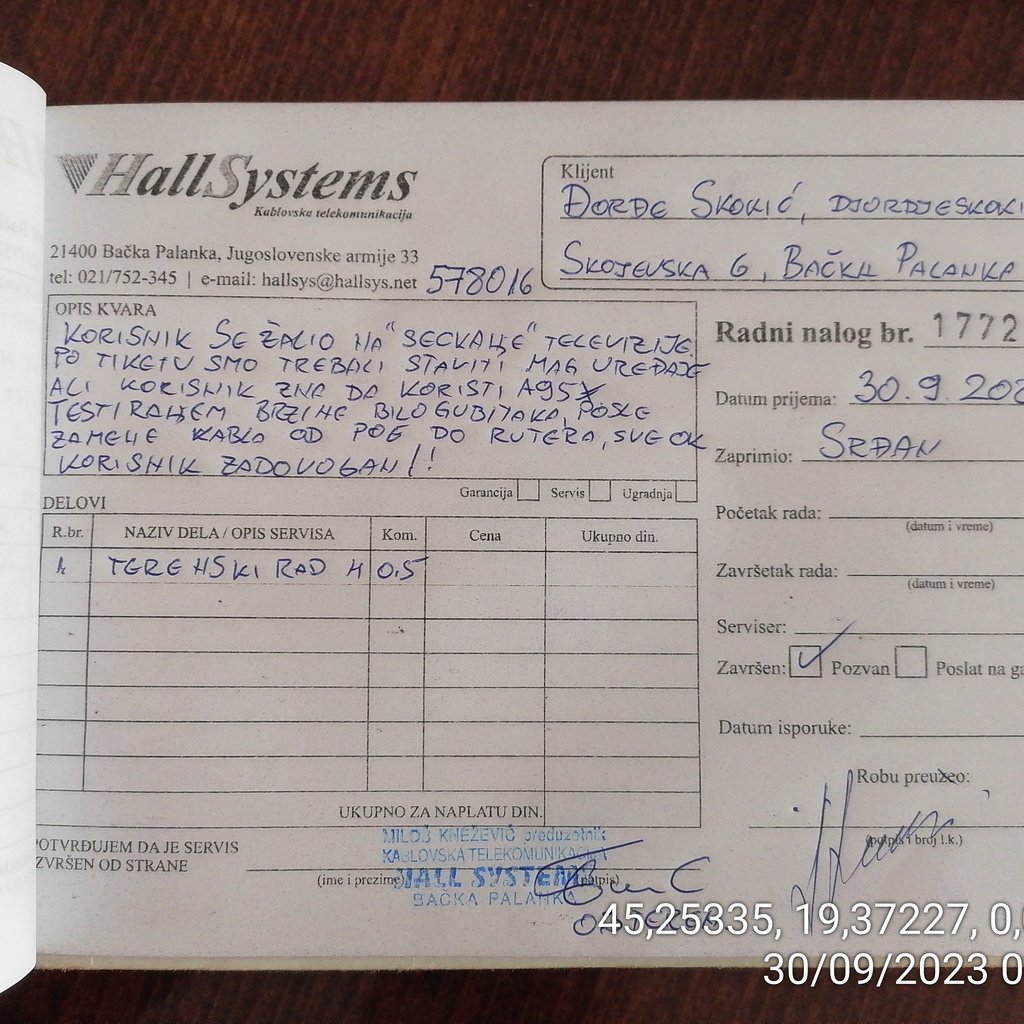 HallSystems
Kablovska telekomunikacija
21400 Bačka Palanka, Jugoslovenske armije 33
tel: 021/752-345 | e-mail: hallsys@hallsys.net
578016
Klijent
ĐORĐE SKOKIĆ, DJORDJESKOKI
SKOJEVSKA 6, BAČKA PALANKA
OPIS KVARA
KORISNIK SE ŽALIO NA "SECKANJE" TELEVIZIJE.
PO TIKETU SMO TREBALI STAVITI MAG UREĐAJE
ALI KORISNIK ZNA DA KORISTI A95X
TESTIRANJEM BRZINE BILO GUBITAKA, POSLE
ZAMENE KABLA OD POE DO RUTERA, SVE OK
KORISNIK ZADOVOGAN!!
Garancija Servis Ugradnja
Radni nalog br. 1772
Datum prijema: 30.9.202
Zaprimio: SRĐAN
Početak rada:
(datum i vreme)
Završetak rada:
(datum i vreme)
Serviser:
Završen: Pozvan Poslat na ga
Datum isporuke:
Robu preuzeo:
(potpis i broj l.k.)
DELOVI
R.br. NAZIV DELA / OPIS SERVISA Kom. Cena Ukupno din.
1. TERENSKI RAD H 0.5
UKUPNO ZA NAPLATU DIN.
POTVRĐUJEM DA JE SERVIS
IZVRŠEN OD STRANE
(ime i prezime) (potpis)
MILOŠ KNEŽEVIĆ preduzetnik
KABLOVSKA TELEKOMUNIKACIJA
HALL SYSTEM
BAČKA PALANKA
45,25335, 19,37227, 0,
30/09/2023 0